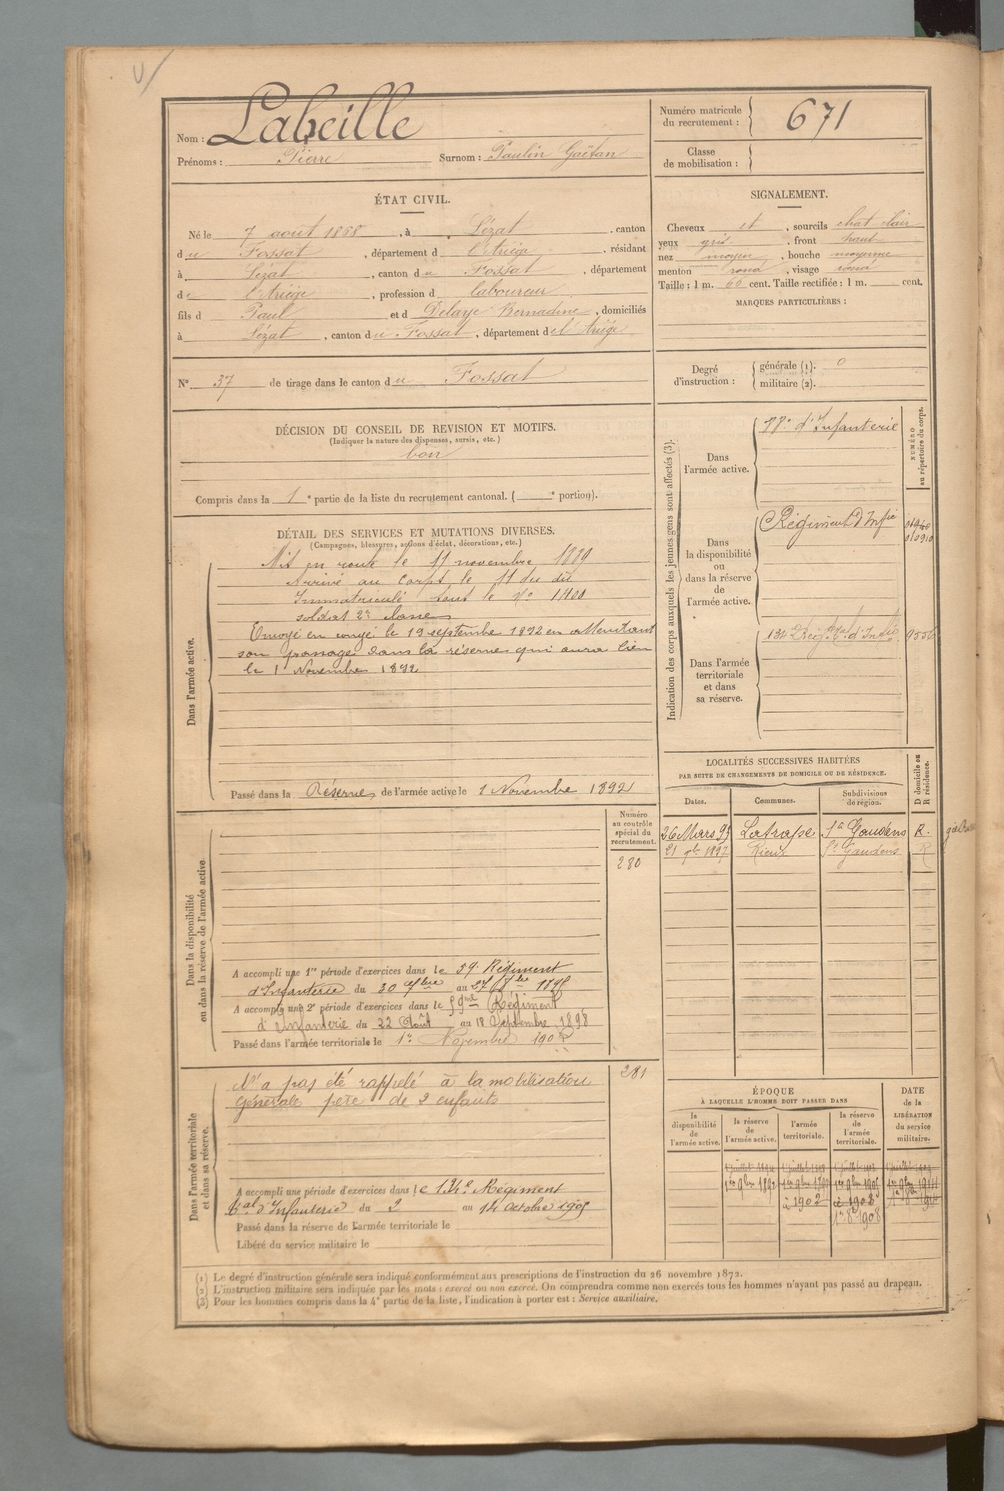 Nom : Labeille
Prénoms : Pierre Surnom : Paulin Gaëtan
Numéro matricule du recrutement : 671
Classe de mobilisation :
ÉTAT CIVIL.
Né le 7 août 1868, à Lézat, canton
du Fossat, département d l'Ariège, résidant
à Lézat, canton du Fossat, département
de l'Ariège, profession d laboureur
fils d Paul et d Delaye Bernadine, domiciliés
à Lézat, canton du Fossat, département de l'Ariège
SIGNALEMENT.
Cheveux et, sourcils chat clair
yeux gris, front haut
nez moyen, bouche moyenne
menton rond, visage rond
Taille : 1 m. 66 cent. Taille rectifiée : 1 m. cent.
MARQUES PARTICULIÈRES :
N° 37 de tirage dans le canton du Fossat
Degré d'instruction : générale (1). 0
militaire (2).
DÉCISION DU CONSEIL DE REVISION ET MOTIFS.
(Indiquer la nature des dispenses, sursis, etc.)
bon
Compris dans la 1e partie de la liste du recrutement cantonal. ( e portion).
DÉTAIL DES SERVICES ET MUTATIONS DIVERSES.
(Campagnes, blessures, actions d'éclat, décorations, etc.)
Dans l'armée active.
Mis en route le 11 novembre 1889
Arrivé au corps le 11 du dit
Immatriculé sous le N° 1400
soldat 2e classe
Envoyé en congé le 19 septembre 1892 en attendant
son passage dans la réserve qui aura lieu
le 1 Novembre 1892
Passé dans la Réserve de l'armée active le 1 Novembre 1892
Indication des corps auxquels les jeunes gens sont affectés (3).
NUMÉRO au répertoire du corps.
Dans l'armée active.
d'Infanterie
Dans la disponibilité ou dans la réserve de l'armée active.
Régiment d'Infie
Dans l'armée territoriale et dans sa réserve.
134 Régt
LOCALITÉS SUCCESSIVES HABITÉES
PAR SUITE DE CHANGEMENTS DE DOMICILE OU DE RÉSIDENCE.
D domicile ou R résidence.
Dates. Communes. Subdivisions de région.
26 Mars 93 Latrape St Gaudens R.
21 1897 Rieux St Gaudens R
Dans la disponibilité ou dans la réserve de l'armée active
Numéro au contrôle spécial du recrutement.
280
A accompli une 1re période d'exercices dans le 59e Régiment
d'Infanterie du 30 au 27 1895
A accompli une 2e période d'exercices dans le 59me Régiment
d'Infanterie du 22 Août au 18 Septembre 1898
Passé dans l'armée territoriale le 1er Novembre 1902
Dans l'armée territoriale et dans sa réserve.
281
N'a pas été rappelé à la mobilisation
générale père de 2 enfants
A accompli une période d'exercices dans le 134e Régiment
d'Infanterie du 3 au 14 octobre 1905
Passé dans la réserve de l'armée territoriale le
Libéré du service militaire le
ÉPOQUE
À LAQUELLE L'HOMME DOIT PASSER DANS
la disponibilité de l'armée active.
la réserve de l'armée active.
l'armée territoriale.
la réserve de l'armée territoriale.
DATE de la LIBÉRATION du service militaire.
1er 9bre 1892
à 1902
1908
(1) Le degré d'instruction générale sera indiqué conformément aux prescriptions de l'instruction du 26 novembre 1872.
(2) L'instruction militaire sera indiquée par les mots : exercé ou non exercé. On comprendra comme non exercés tous les hommes n'ayant pas passé au drapeau.
(3) Pour les hommes compris dans la 4e partie de la liste, l'indication à porter est : Service auxiliaire.